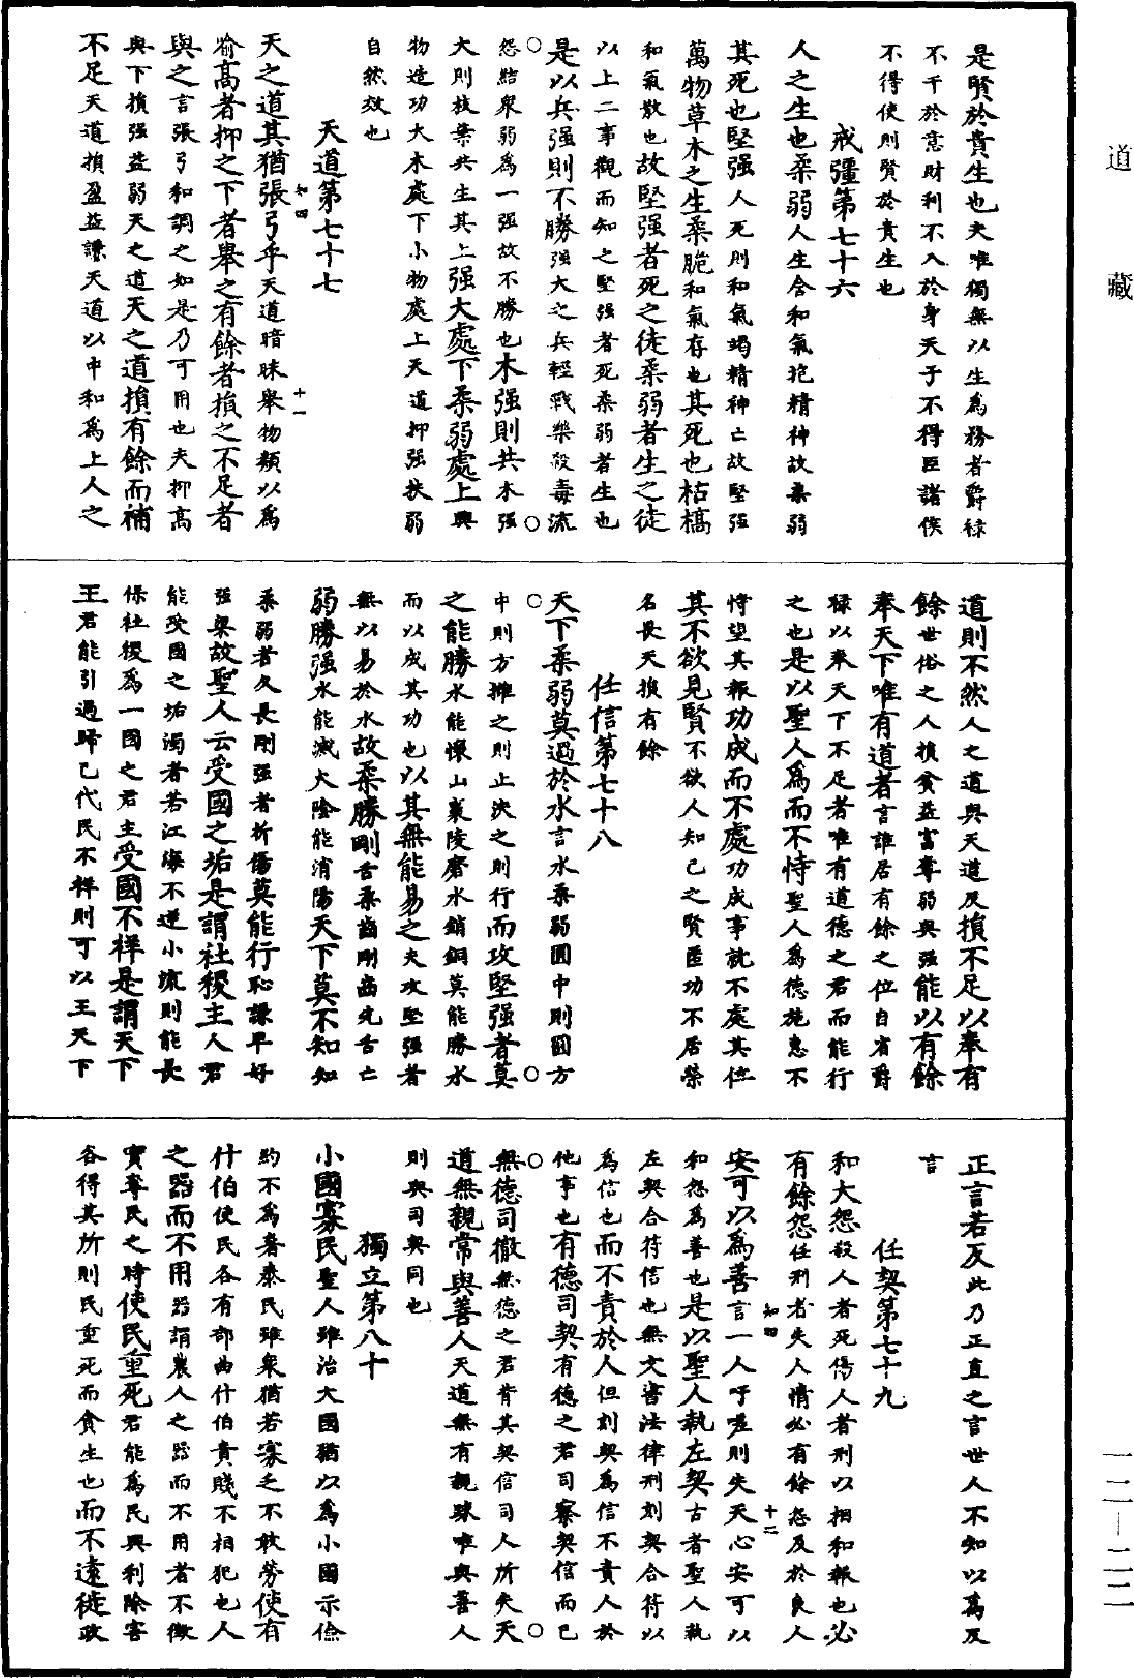 道藏
是賢於貴生也夫唯獨無以生為務者爵祿
不干於意財利不入於身天子不得臣諸侯
不得使則賢於貴生也
戒彊第七十六
人之生也柔弱人生含和氣抱精神故柔弱
其死也堅强人死則和氣竭精神亡故堅强
萬物草木之生柔脆和氣存也其死也枯槁
和氣散也故堅强者死之徒柔弱者生之徒
以上二事觀而知之堅强者死柔弱者生也
是以兵强則不勝强大之兵輕戰樂殺毒流
怨結衆弱為一强故不勝也木强則共木强
大則枝葉共生其上强大處下柔弱處上興
物造功大木處下小物處上天道抑强扶弱
自然效也
天道第七十七
知四
十一
天之道其猶張弓乎天道暗昧舉物類以為
喻高者抑之下者舉之有餘者損之不足者
與之言張弓和調之如是乃可用也夫抑高
與下損强益弱天之道天之道損有餘而補
不足天道損盈益謙天道以中和為上人之
道則不然人之道與天道反損不足以奉有
餘世俗之人損貧益富奪弱與强能以有餘
奉天下唯有道者言誰居有餘之位自省爵
祿以奉天下不足者唯有道德之君而能行
之也是以聖人為而不恃聖人為德施惠不
恃望其報功成而不處功成事就不處其位
其不欲見賢不欲人知己之賢匿功不居榮
名畏天損有餘
任信第七十八
天下柔弱莫過於水言水柔弱圓中則圓方
中則方擁之則止決之則行而攻堅强者莫
之能勝水能懷山襄陵磨水銷銅莫能勝水
而以成其功也以其無能易之夫攻堅强者
無以易於水故柔勝剛舌柔齒剛齒先舌亡
弱勝强水能滅火陰能消陽天下莫不知知
柔弱者久長剛强者折傷莫能行恥謙卑好
强梁故聖人云受國之垢是謂社稷主人君
能受國之垢濁者若江海不逆小流則能長
保社稷為一國之君主受國不祥是謂天下
王君能引過歸己代民不祥則可以王天下
正言若反此乃正直之言世人不知以為反
言
任契第七十九
和大怨殺人者死傷人者刑以相和報也必
有餘怨任刑者失人情必有餘怨及於良人
知四
十二
安可以為善言一人吁嗟則失天心安可以
和怨為善也是以聖人執左契古者聖人執
左契合符信也無文書法律刑刻契合符以
為信也而不責於人但刻契為信不責人於
他事也有德司契有德之君司察契信而已
無德司徹無德之君背其契信司人所失天
道無親常與善人天道無有親疎唯與善人
則與司契同也
獨立第八十
小國寡民聖人雖治大國猶以為小國示儉
約不為奢泰民雖衆猶若寡乏不敢勞使有
什伯使民各有部曲什伯貴賤不相犯也人
之器而不用器謂農人之器而不用者不徵
實奪民之時使民重死君能為民興利除害
各得其所則民重死而貪生也而不遠徙政
一二—二二